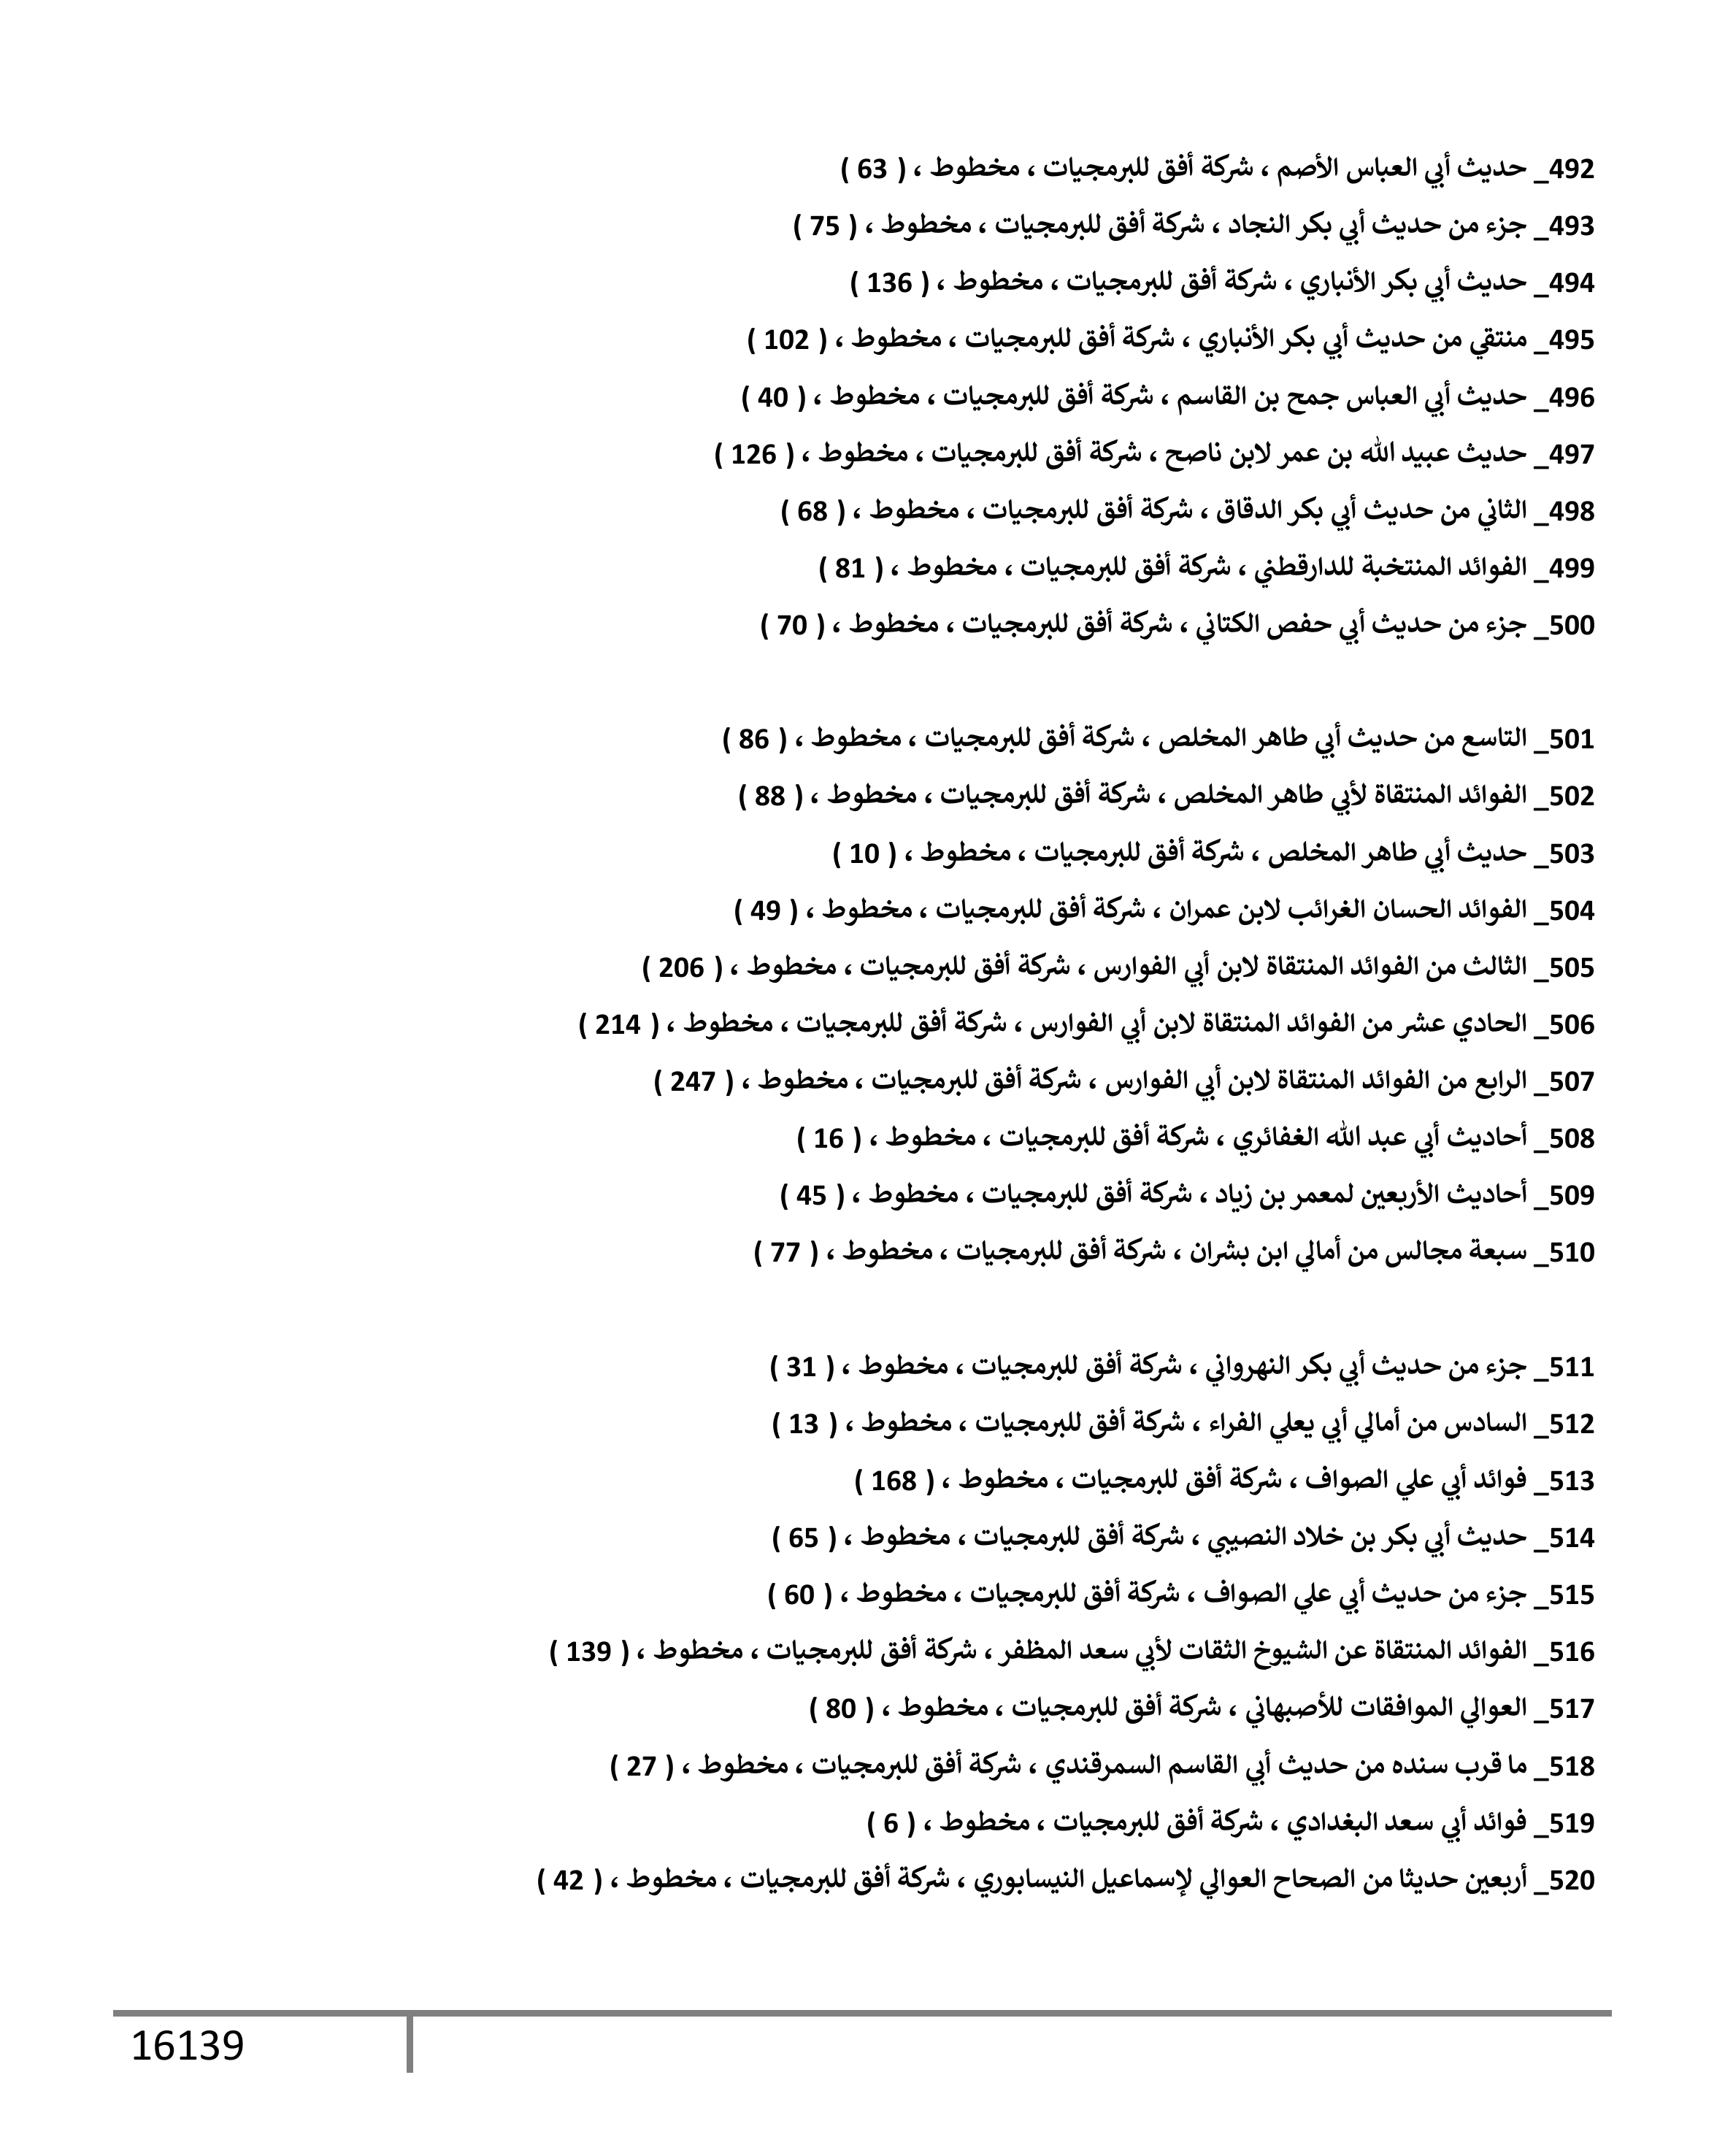 492_ حديث أبي العباس الأصم ، شركة أفق للبرمجيات ، مخطوط ، ( 63 )
493_ جزء من حديث أبي بكر النجاد ، شركة أفق للبرمجيات ، مخطوط ، ( 75 )
494_ حديث أبي بكر الأنباري ، شركة أفق للبرمجيات ، مخطوط ، ( 136 )
495_ منتقي من حديث أبي بكر الأنباري ، شركة أفق للبرمجيات ، مخطوط ، ( 102 )
496_ حديث أبي العباس جمح بن القاسم ، شركة أفق للبرمجيات ، مخطوط ، ( 40 )
497_ حديث عبيد الله بن عمر لابن ناصح ، شركة أفق للبرمجيات ، مخطوط ، ( 126 )
498_ الثاني من حديث أبي بكر الدقاق ، شركة أفق للبرمجيات ، مخطوط ، ( 68 )
499_ الفوائد المنتخبة للدارقطني ، شركة أفق للبرمجيات ، مخطوط ، ( 81 )
500_ جزء من حديث أبي حفص الكتاني ، شركة أفق للبرمجيات ، مخطوط ، ( 70 )
501_ التاسع من حديث أبي طاهر المخلص ، شركة أفق للبرمجيات ، مخطوط ، ( 86 )
502_ الفوائد المنتقاة لأبي طاهر المخلص ، شركة أفق للبرمجيات ، مخطوط ، ( 88 )
503_ حديث أبي طاهر المخلص ، شركة أفق للبرمجيات ، مخطوط ، ( 10 )
504_ الفوائد الحسان الغرائب لابن عمران ، شركة أفق للبرمجيات ، مخطوط ، ( 49 )
505_ الثالث من الفوائد المنتقاة لابن أبي الفوارس ، شركة أفق للبرمجيات ، مخطوط ، ( 206 )
506_ الحادي عشر من الفوائد المنتقاة لابن أبي الفوارس ، شركة أفق للبرمجيات ، مخطوط ، ( 214 )
507_ الرابع من الفوائد المنتقاة لابن أبي الفوارس ، شركة أفق للبرمجيات ، مخطوط ، ( 247 )
508_ أحاديث أبي عبد الله الغفائري ، شركة أفق للبرمجيات ، مخطوط ، ( 16 )
509_ أحاديث الأربعين لمعمر بن زياد ، شركة أفق للبرمجيات ، مخطوط ، ( 45 )
510_ سبعة مجالس من أمالي ابن بشران ، شركة أفق للبرمجيات ، مخطوط ، ( 77 )
511_ جزء من حديث أبي بكر النهرواني ، شركة أفق للبرمجيات ، مخطوط ، ( 31 )
512_ السادس من أمالي أبي يعلي الفراء ، شركة أفق للبرمجيات ، مخطوط ، ( 13 )
513_ فوائد أبي علي الصواف ، شركة أفق للبرمجيات ، مخطوط ، ( 168 )
514_ حديث أبي بكر بن خلاد النصيبي ، شركة أفق للبرمجيات ، مخطوط ، ( 65 )
515_ جزء من حديث أبي علي الصواف ، شركة أفق للبرمجيات ، مخطوط ، ( 60 )
516_ الفوائد المنتقاة عن الشيوخ الثقات لأبي سعد المظفر ، شركة أفق للبرمجيات ، مخطوط ، ( 139 )
517_ العوالي الموافقات للأصبهاني ، شركة أفق للبرمجيات ، مخطوط ، ( 80 )
518_ ما قرب سنده من حديث أبي القاسم السمرقندي ، شركة أفق للبرمجيات ، مخطوط ، ( 27 )
519_ فوائد أبي سعد البغدادي ، شركة أفق للبرمجيات ، مخطوط ، ( 6 )
520_ أربعين حديثا من الصحاح العوالي لإسماعيل النيسابوري ، شركة أفق للبرمجيات ، مخطوط ، ( 42 )
16139